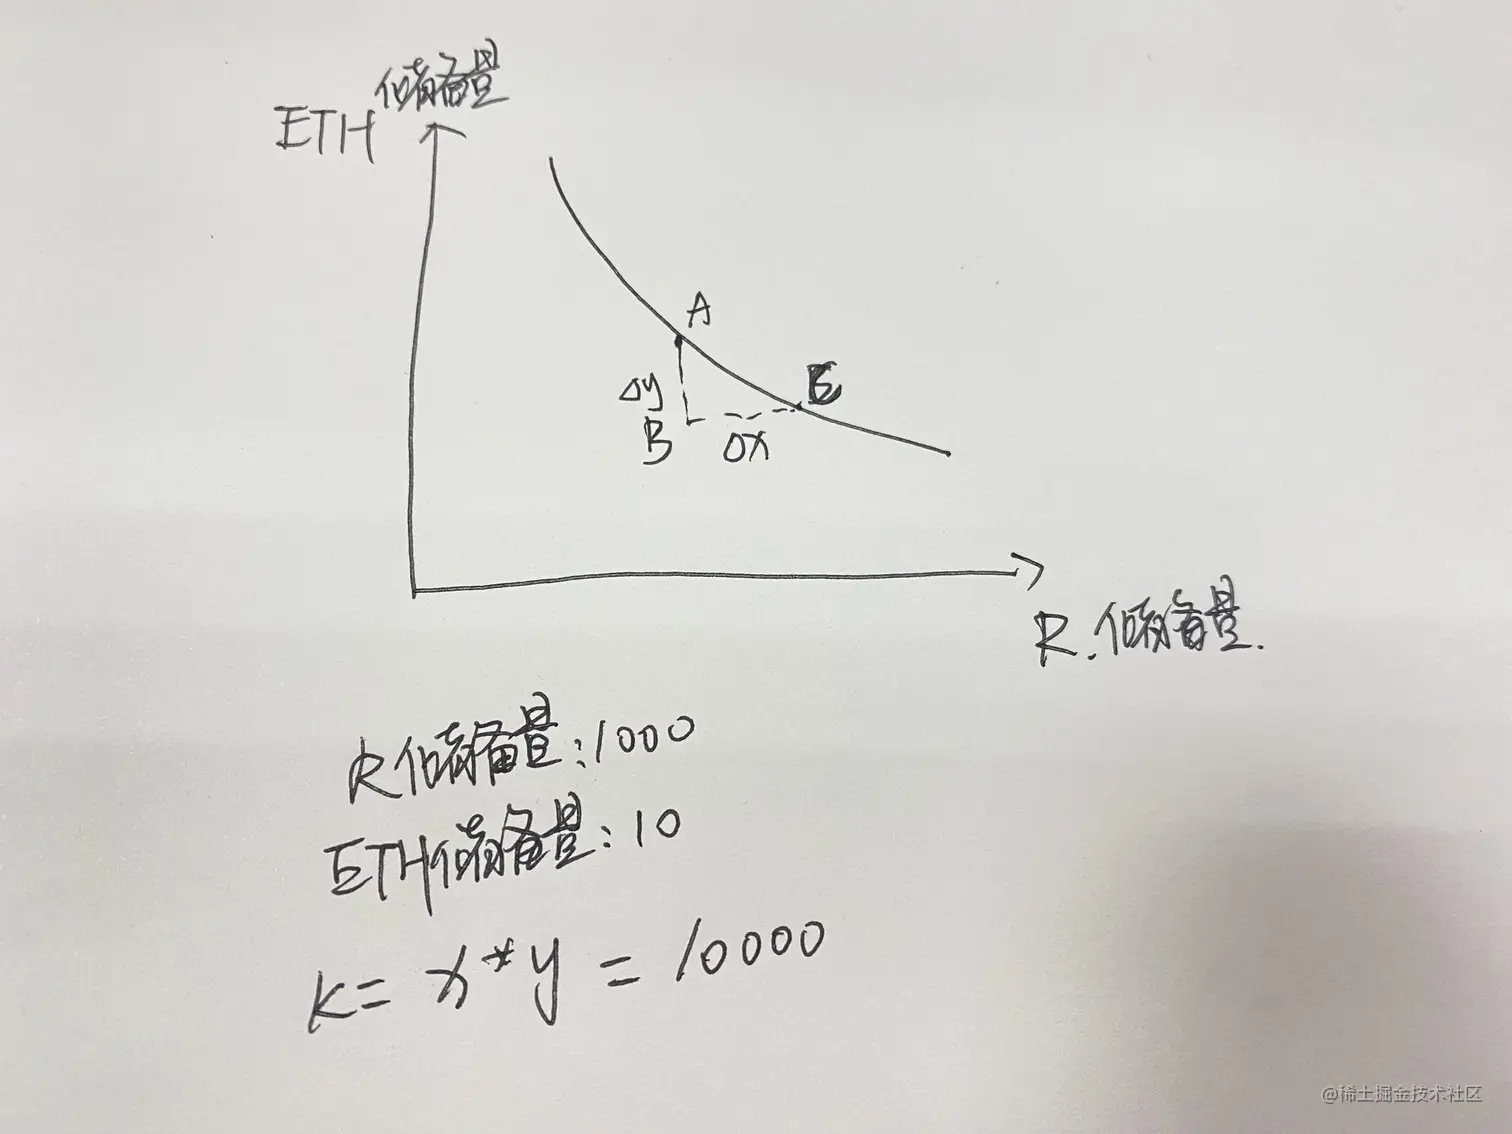 ETH储备量
A
E
Δy
B
Δx
R.储备量.
R储备量:1000
ETH储备量:10
K=x*y=10000
@稀土掘金技术社区